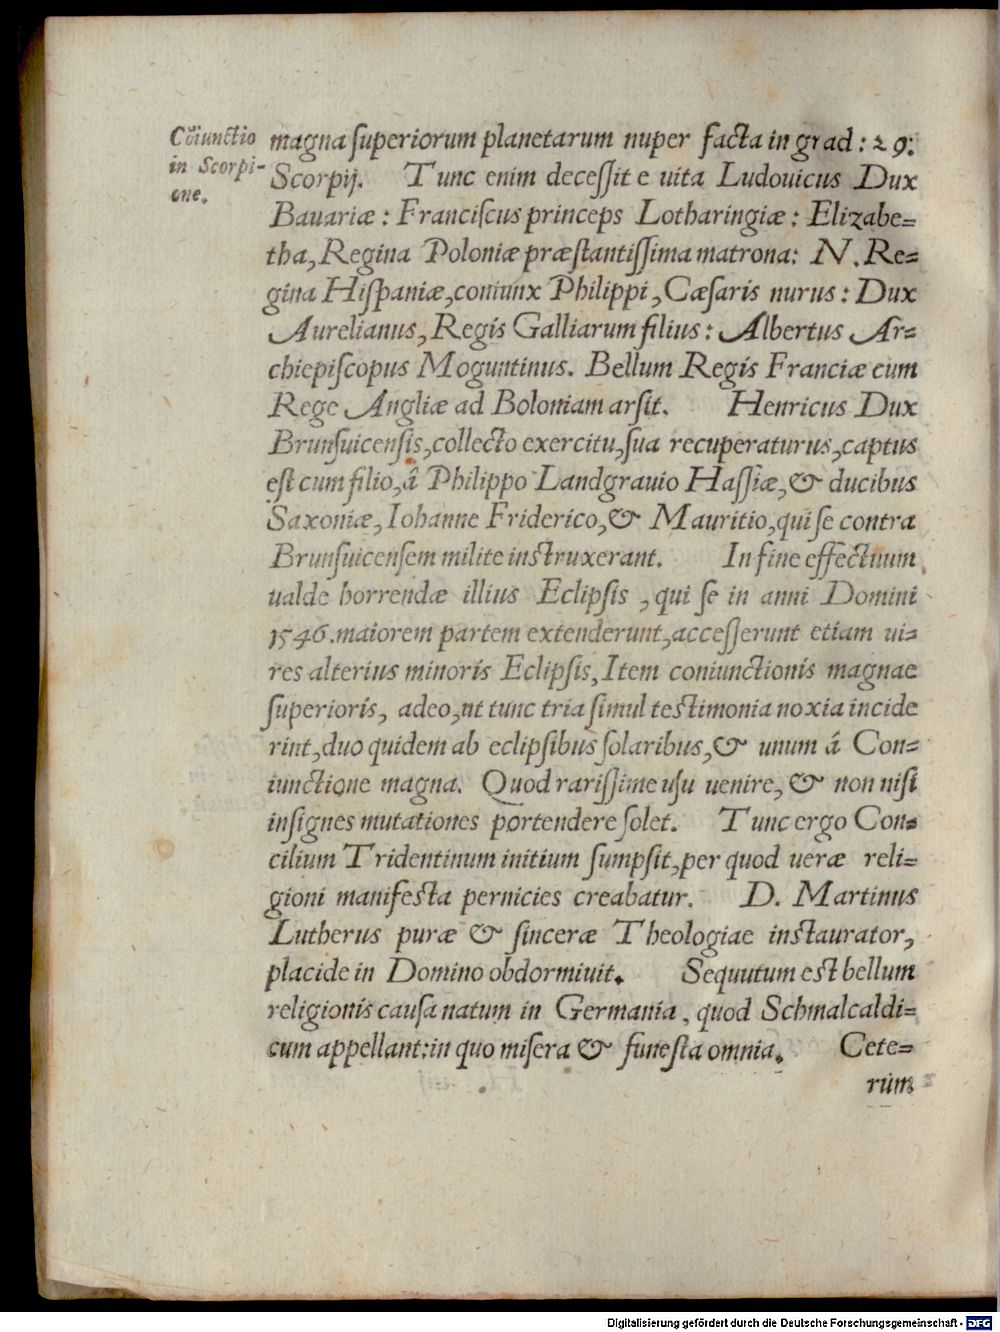 Cōiunctio
in Scorpi-
one.
magna ſuperiorum planetarum nuper facta in grad: 29:
Scorpij. Tunc enim deceſſit e uita Ludouicus Dux
Bauariæ: Franciſcus princeps Lotharingiæ: Elizabe=
tha, Regina Poloniæ præſtantiſſima matrona: N. Re=
gina Hiſpaniæ, coniunx Philippi, Cæſaris nurus: Dux
Aurelianus, Regis Galliarum filius: Albertus Ar=
chiepiſcopus Moguntinus. Bellum Regis Franciæ cum
Rege Angliæ ad Boloniam arſit. Henricus Dux
Brunſuicenſis, collecto exercitu, ſua recuperaturus, captus
eſt cum filio, â Philippo Landgrauio Haſſiæ, & ducibus
Saxoniæ, Iohanne Friderico, & Mauritio, qui ſe contra
Brunſuicenſem milite inſtruxerant. In fine effectuum
ualde horrendæ illius Eclipſis, qui ſe in anni Domini
1546. maiorem partem extenderunt, acceſſerunt etiam ui=
res alterius minoris Eclipſis, Item coniunctionis magnae
ſuperioris, adeo, ut tunc tria ſimul teſtimonia noxia incide
rint, duo quidem ab eclipſibus ſolaribus, & unum â Con=
iunctione magna. Quod rariſſime uſu uenire, & non niſi
inſignes mutationes portendere ſolet. Tunc ergo Con=
cilium Tridentinum initium ſumpſit, per quod ueræ reli=
gioni manifeſta pernicies creabatur. D. Martinus
Lutherus puræ & ſinceræ Theologiae inſtaurator,
placide in Domino obdormiuit. Sequutum eſt bellum
religionis cauſa natum in Germania, quod Schmalcaldi=
cum appellant: in quo miſera & funeſta omnia. Cete=
rum
Digitalisierung gefördert durch die Deutsche Forschungsgemeinschaft - DFG